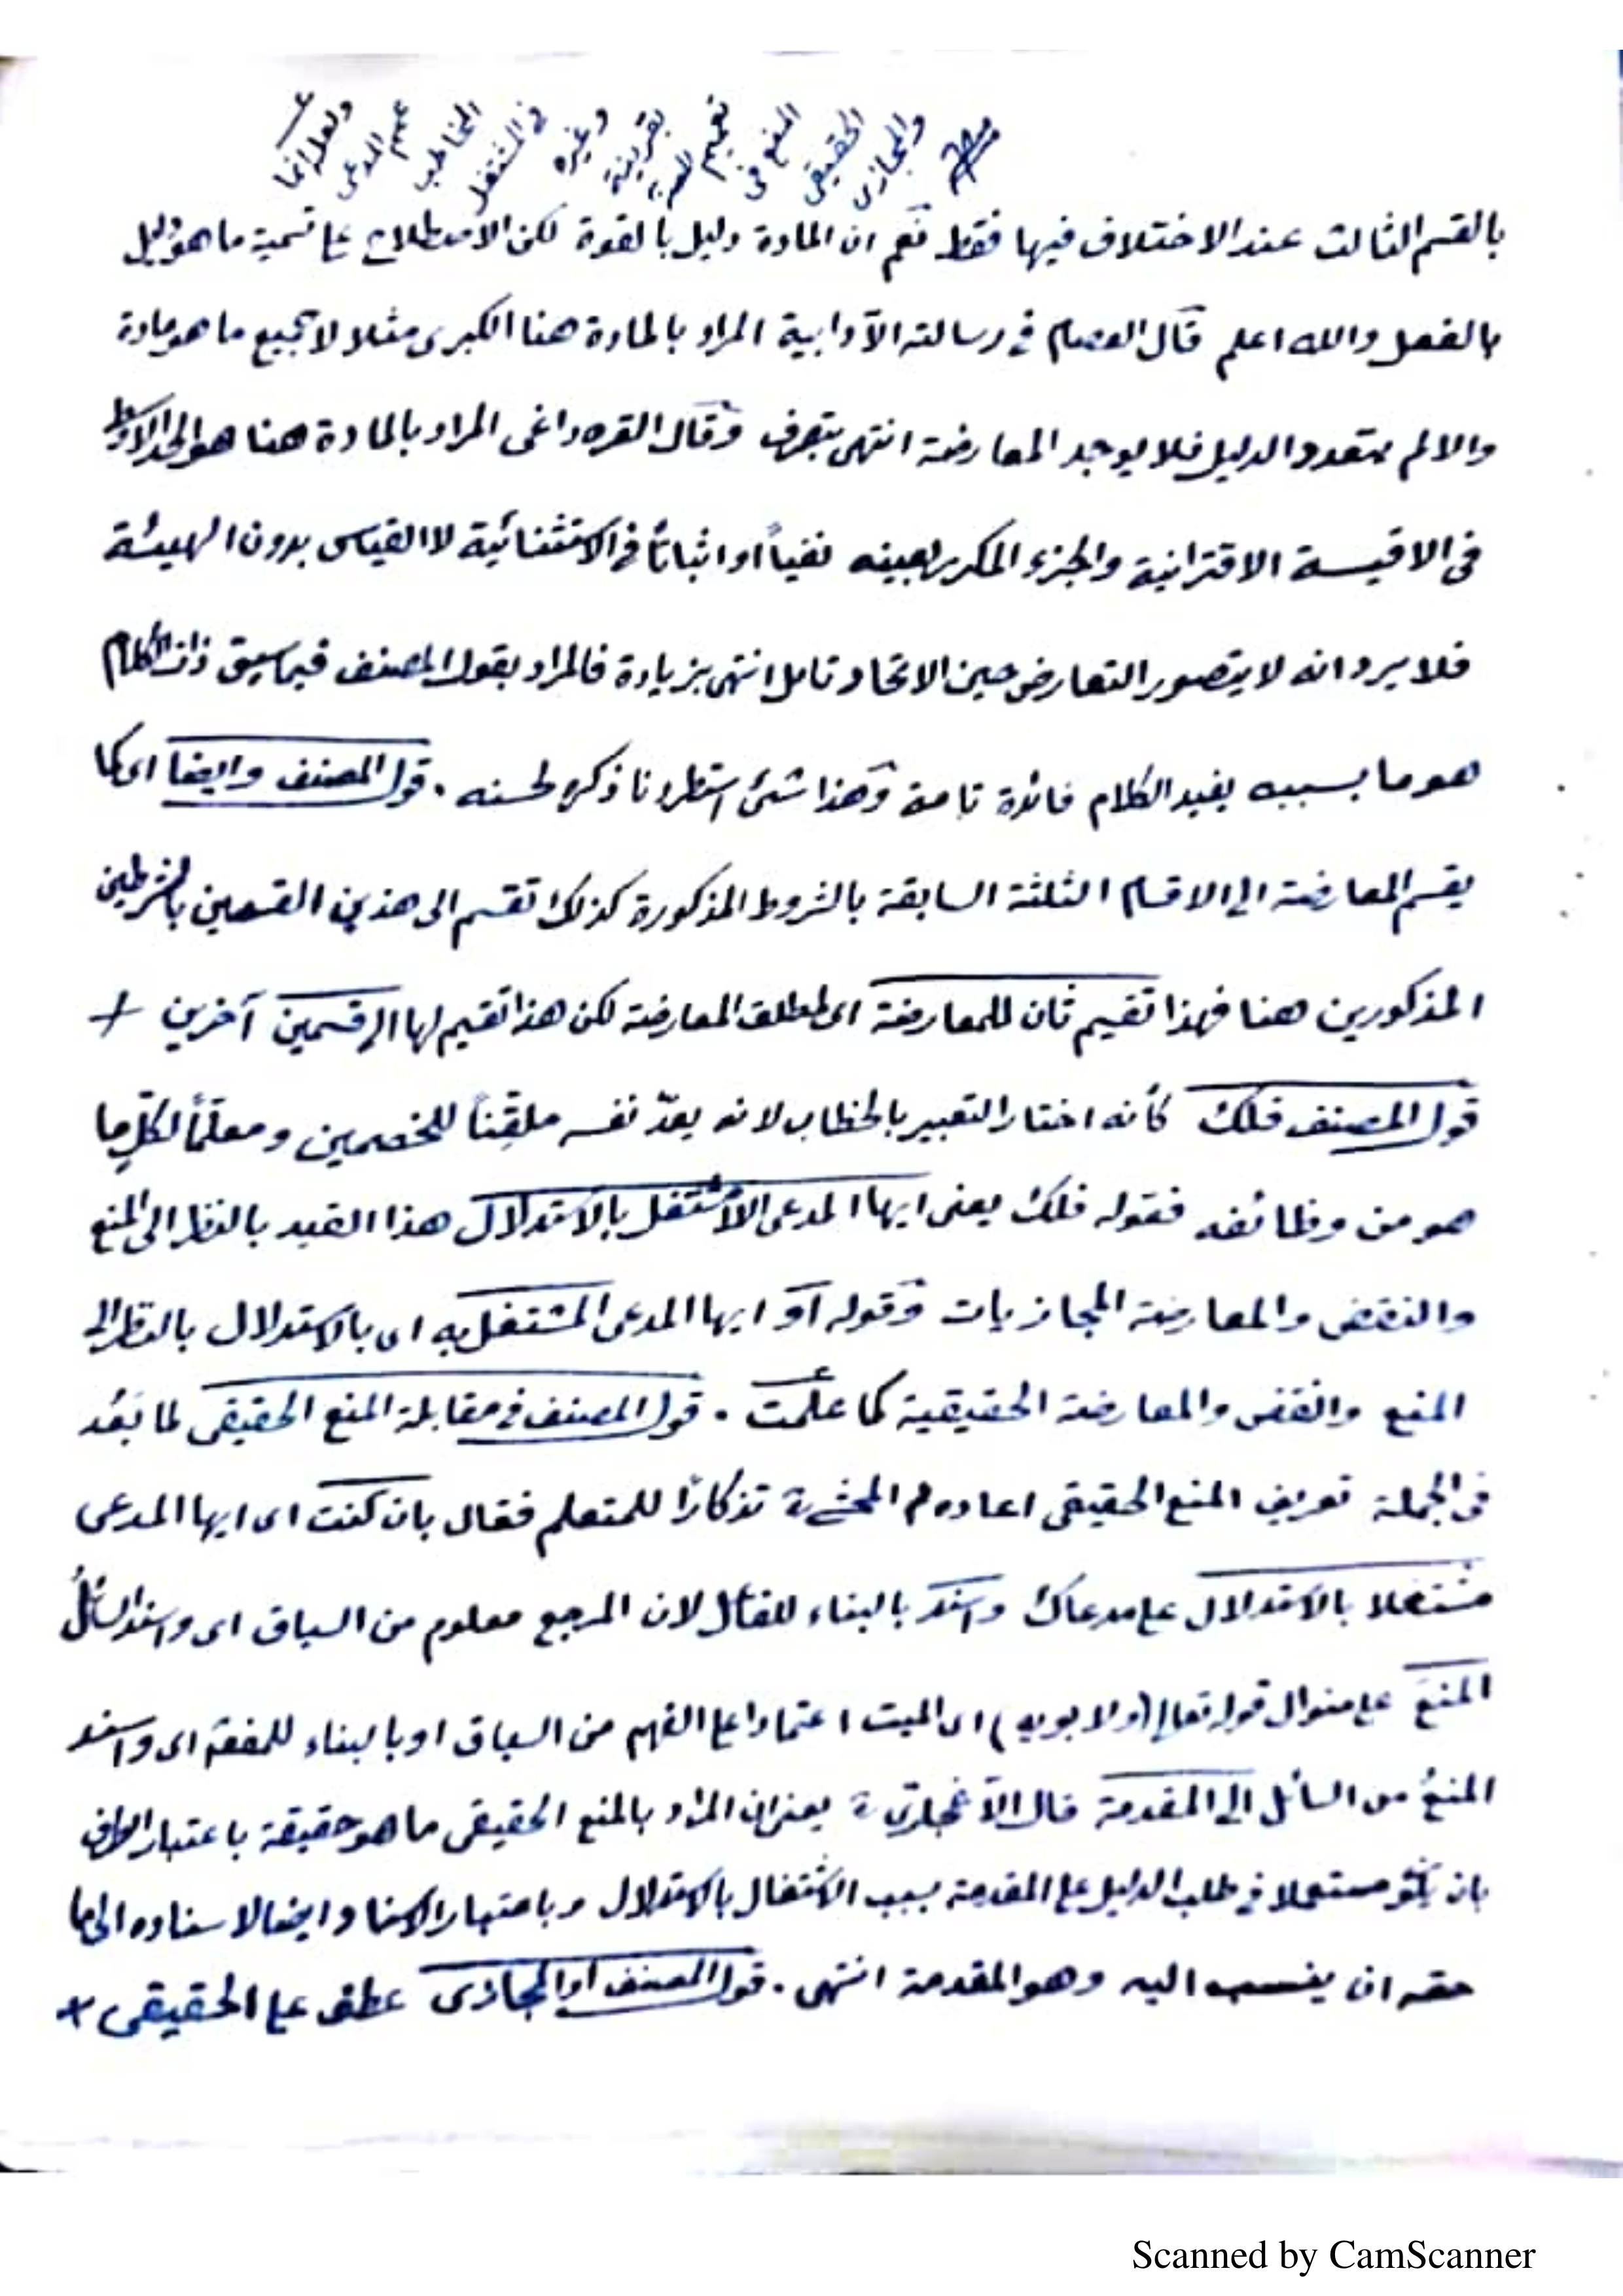 ولعله انما
عمم المدعى
المخاطب
في المشتغل
وغيره
بقرينة
تعميم
المنع في
الحقيقي
والمجازي
بالقسم الثالث عند الاختلاف فيها فقط نعم ان المادة دليل بالقوة لكن الاصطلاح على تسمية ما هو دليل
بالفعل والله اعلم قال العصام في رسالته الآدابية المراد بالمادة هنا الكبرى مثلا لا جميع ما هو مادة
والا لم يتعدد الدليل فلا يوجد المعارضة انتهى بتصرف وقال القره داغى المراد بالمادة هنا هو الحد الاوسط
فى الاقيسة الاقترانية والجزء المكرر بعينه نفياً او اثباتاً في الاستثنائية لا القياس بدون الهيئة
فلا يرد انه لا يتصور التعارض حين الاتحاد تامل انتهى بزيادة فالمراد بقول المصنف فيما سبق ذات الكلام
هو ما بسببه يفيد الكلام فائدة تامة وهذا شئ استطردنا ذكره لحسنه . قول المصنف وايضا اى كما
يقسم المعارضة الى الاقسام الثلثة السابقة بالشروط المذكورة كذلك تقسم الى هذين القسمين بالشرطين
المذكورين هنا فهذا تقسيم ثان للمعارضة اى لمطلق المعارضة لكن هذا تقسيم لها الى قسمين آخرين +
قول المصنف فلك كأنه اختار التعبير بالخطاب لانه يعدّ نفسه ملقِّناً للخصمين ومعلّماً لكلٍّ ما
هو من وظائفه فقوله فلك يعنى ايها المدعى المشتغل بالاستدلال هذا القيد بالنظر الى المنع
والنقض والمعارضة المجازيات وقوله او ايها المدعى المشتغل به اى بالاستدلال بالنظر الى
المنع والنقض والمعارضة الحقيقية كما علمت . قول المصنف في مقابلة المنع الحقيقي لما بَعُد
فى الجملة تعريف المنع الحقيقى اعاده المحشي تذكارًا للمتعلم فقال بان كنت اى ايها المدعى
مشتغلا بالاستدلال على مدعاك واسند بالبناء للفاعل لان المرجع معلوم من السياق اى واسند السائلُ
المنعَ على منوال قوله تعالى (ولابويه) اى الميت اعتمادا على الفهم من السياق او بالبناء للمفعول اى واسند
المنعُ من السائل الى المقدمة قال يعنى ان المراد بالمنع الحقيقى ما هو حقيقة باعتبار الطرف
بان يكون مستعملا في طلب الدليل على المقدمة بسبب الاشتغال بالاستدلال وباعتبار الاسناد ايضا لاسناده الى ما
حقه ان ينسب اليه وهو المقدمة انتهى . قول المصنف او المجازى عطف على الحقيقى +
Scanned by CamScanner